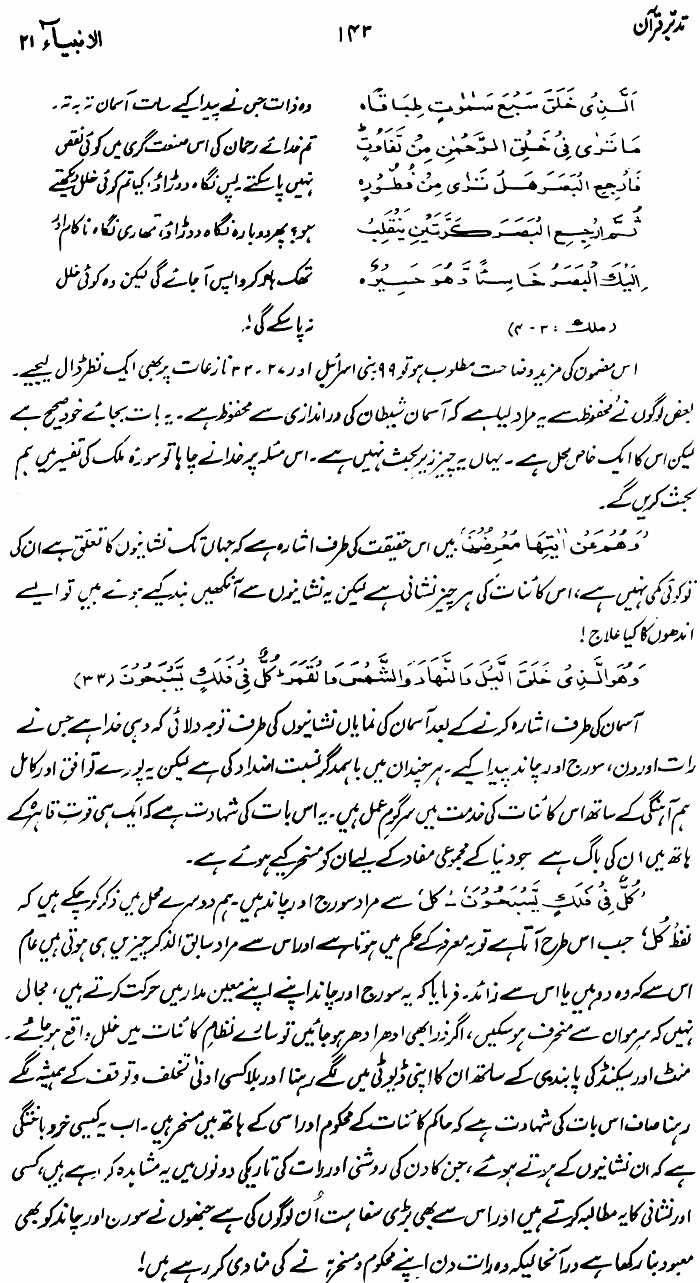 تدبر قرآن ۱۴۳ الانبیاء ۲۱
اَلَّذِیْ خَلَقَ سَبْعَ سَمٰوٰتٍ طِبَاقًاہ
مَا تَرٰی فِیْ خَلْقِ الرَّحْمٰنِ مِنْ تَفَاوُتٍ
فَارْجِعِ الْبَصَرَ هَلْ تَرٰی مِنْ فُطُوْرٍہ
ثُمَّ ارْجِعِ الْبَصَرَ کَرَّتَیْنِ یَنْقَلِبْ
اِلَیْكَ الْبَصَرُ خَاسِئًا وَّهُوَ حَسِیْرٌہ
(ملك : ۳-۴)
وہ ذات جس نے پیدا کیے سات آسمان تہ بہ تہ۔
تم خدائے رحمان کی اس صنعت گری میں کوئی نقص
نہیں پا سکتے پس نگاہ دوڑاؤ، کیا تم کوئی خلل دیکھتے
ہو؟ پھر دوبارہ نگاہ دوڑاؤ، تمہاری نگاہ ناکام اور
تھک ہار کر واپس آ جائے گی لیکن وہ کوئی خلل
نہ پا سکے گی!۔
اس مضمون کی مزید وضاحت مطلوب ہو تو ۹۹ بنی اسرائیل اور ۲۷-۳۳ نازعات پر بھی ایک نظر ڈال لیجیے۔
بعض لوگوں نے محفوظ سے یہ مراد لیا ہے کہ آسمان شیطان کی دراندازی سے محفوظ ہے۔ یہ بات بجائے خود صحیح ہے
لیکن اس کا ایک خاص محل ہے۔ یہاں یہ چیز زیر بحث نہیں ہے۔ اس مسئلہ پر خدا نے چاہا تو سورۂ ملک کی تفسیر میں ہم
بحث کریں گے۔
'وَهُمْ عَنْ اٰیٰتِهَا مُعْرِضُوْنَ' میں اس حقیقت کی طرف اشارہ ہے کہ جہاں تک نشانیوں کا تعلق ہے ان کی
تو کوئی کمی نہیں ہے، اس کائنات کی ہر چیز نشانی ہے لیکن یہ نشانیوں سے آنکھیں بند کیے ہوئے ہیں تو ایسے
اندھوں کا کیا علاج!
وَهُوَ الَّذِیْ خَلَقَ الَّیْلَ وَالنَّهَارَ وَالشَّمْسَ وَالْقَمَرَ ؕ کُلٌّ فِیْ فَلَكٍ یَّسْبَحُوْنَ (۳۳)
آسمان کی طرف اشارہ کرنے کے بعد آسمان کی نمایاں نشانیوں کی طرف توجہ دلائی کہ وہی خدا ہے جس نے
رات اور دن، سورج اور چاند پیدا کیے۔ ہر چند ان میں باہمدگر نسبت اضداد کی ہے لیکن یہ پورے توافق اور کامل
ہم آہنگی کے ساتھ اس کائنات کی خدمت میں سرگرم عمل ہیں۔ یہ اس بات کی شہادت ہے کہ ایک ہی قوت قاہرہ کے
ہاتھ میں ان کی باگ ہے جو دنیا کے مجموعی مفاد کے لیے ان کو مسخر کیے ہوئے ہے۔
'کُلٌّ فِیْ فَلَكٍ یَّسْبَحُوْنَ'۔ 'کل' سے مراد سورج اور چاند ہیں۔ ہم دوسرے محل میں ذکر کر چکے ہیں کہ
لفظ 'کُل' جب اس طرح آتا ہے تو یہ معرفہ کے حکم میں ہوتا ہے اور اس سے مراد سابق الذکر چیزیں ہی ہوتی ہیں عام
اس سے کہ وہ دو ہیں یا اس سے زائد۔ فرمایا کہ یہ سورج اور چاند اپنے اپنے معین مدار میں حرکت کرتے ہیں، مجال
نہیں کہ سرمو ان سے منحرف ہو سکیں، اگر ذرا بھی ادھر ادھر ہو جائیں تو سارے نظام کائنات میں خلل واقع ہو جائے۔
منٹ اور سیکنڈ کی پابندی کے ساتھ ان کا اپنی ڈیوٹی میں لگے رہنا اور بلا کسی ادنیٰ تخلف و توقف کے ہمیشہ لگے
رہنا صاف اس بات کی شہادت ہے کہ حاکم کائنات کے محکوم اور اسی کے ہاتھ میں مسخر ہیں۔ اب یہ کیسی خرد باختگی
ہے کہ ان نشانیوں کے ہوتے ہوئے، جن کا دن کی روشنی اور رات کی تاریکی دونوں میں یہ مشاہدہ کر رہے ہیں، کسی
اور نشانی کا یہ مطالبہ کرتے ہیں اور اس سے بھی بڑی سفاہت اُن لوگوں کی ہے جنھوں نے سورج اور چاند کو بھی
معبود بنا رکھا ہے درآنحالیکہ وہ رات دن اپنے محکوم و مسخر ہونے کی منادی کر رہے ہیں!